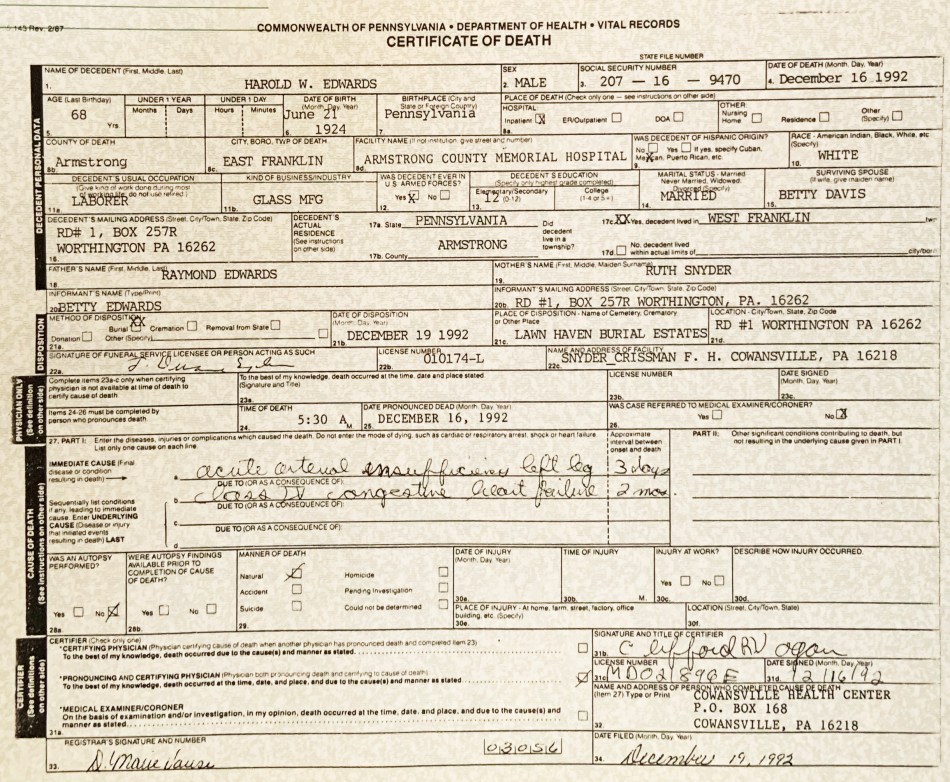 143 Rev. 2/87
COMMONWEALTH OF PENNSYLVANIA • DEPARTMENT OF HEALTH • VITAL RECORDS
CERTIFICATE OF DEATH
STATE FILE NUMBER
NAME OF DECEDENT (First, Middle, Last) SEX SOCIAL SECURITY NUMBER DATE OF DEATH (Month, Day, Year)
1. HAROLD W. EDWARDS 2. MALE 3. 207 — 16 — 9470 4. December 16 1992
AGE (Last Birthday) UNDER 1 YEAR UNDER 1 DAY DATE OF BIRTH (Month, Day, Year) BIRTHPLACE (City and State or Foreign Country) PLACE OF DEATH (Check only one — see instructions on other side)
Months Days Hours Minutes HOSPITAL: OTHER:
5. 68 Yrs. 6. June 21 1924 7. Pennsylvania 8a. Inpatient X ER/Outpatient DOA Nursing Home Residence Other (Specify)
COUNTY OF DEATH CITY, BORO, TWP OF DEATH FACILITY NAME (If not institution, give street and number) WAS DECEDENT OF HISPANIC ORIGIN? RACE - American Indian, Black, White, etc. (Specify)
No X Yes If yes, specify Cuban, Mexican, Puerto Rican, etc.
8b. Armstrong 8c. EAST FRANKLIN 8d. ARMSTRONG COUNTY MEMORIAL HOSPITAL 9. 10. WHITE
DECEDENT'S USUAL OCCUPATION KIND OF BUSINESS/INDUSTRY WAS DECEDENT EVER IN U.S. ARMED FORCES? DECEDENT'S EDUCATION MARITAL STATUS - Married Never Married, Widowed, Divorced (Specify) SURVIVING SPOUSE (If wife, give maiden name)
(Give kind of work done during most of working life; do not use retired.) (Specify only highest grade completed)
Elementary/Secondary (0-12) College (1-4 or 5+)
11a. LABORER 11b. GLASS MFG 12. Yes X No 13. 12 14. MARRIED 15. BETTY DAVIS
DECEDENT'S MAILING ADDRESS (Street, City/Town, State, Zip Code) DECEDENT'S ACTUAL RESIDENCE (See instructions on other side)
RD# 1, BOX 257R 17a. State PENNSYLVANIA Did decedent live in a township? 17c. XX Yes, decedent lived in WEST FRANKLIN twp
16. WORTHINGTON PA 16262 17b. County ARMSTRONG 17d. No, decedent lived within actual limits of city/boro
FATHER'S NAME (First, Middle, Last) MOTHER'S NAME (First, Middle, Maiden Surname)
18. RAYMOND EDWARDS 19. RUTH SNYDER
INFORMANT'S NAME (Type/Print) INFORMANT'S MAILING ADDRESS (Street, City/Town, State, Zip Code)
20a. BETTY EDWARDS 20b. RD #1, BOX 257R WORTHINGTON, PA. 16262
METHOD OF DISPOSITION DATE OF DISPOSITION (Month, Day, Year) PLACE OF DISPOSITION - Name of Cemetery, Crematory or Other Place LOCATION - City/Town, State, Zip Code
Burial XX Cremation Removal from State
Donation Other (Specify)
21a. 21b. DECEMBER 19 1992 21c. LAWN HAVEN BURIAL ESTATES 21d. RD #1 WORTHINGTON PA 16262
SIGNATURE OF FUNERAL SERVICE LICENSEE OR PERSON ACTING AS SUCH LICENSE NUMBER NAME AND ADDRESS OF FACILITY
22a. 22b. 010174-L 22c. SNYDER CRISSMAN F. H. COWANSVILLE, PA 16218
Complete items 23a-c only when certifying physician is not available at time of death to certify cause of death
To the best of my knowledge, death occurred at the time, date and place stated. (Signature and Title) LICENSE NUMBER DATE SIGNED (Month, Day, Year)
23a. 23b. 23c.
Items 24-26 must be completed by person who pronounces death
TIME OF DEATH DATE PRONOUNCED DEAD (Month, Day, Year) WAS CASE REFERRED TO MEDICAL EXAMINER/CORONER?
24. 5:30 A M 25. DECEMBER 16, 1992 26. Yes No X
27. PART I: Enter the diseases, injuries or complications which caused the death. Do not enter the mode of dying, such as cardiac or respiratory arrest, shock or heart failure. List only one cause on each line.
Approximate interval between onset and death
PART II: Other significant conditions contributing to death, but not resulting in the underlying cause given in PART I.
IMMEDIATE CAUSE (Final disease or condition resulting in death)
a. acute arterial insufficiency left leg 3 days
DUE TO (OR AS A CONSEQUENCE OF):
b. class IV congestive heart failure 2 mos.
DUE TO (OR AS A CONSEQUENCE OF):
Sequentially list conditions if any, leading to immediate cause. Enter UNDERLYING CAUSE (Disease or injury that initiated events resulting in death) LAST
c.
DUE TO (OR AS A CONSEQUENCE OF):
d.
WAS AN AUTOPSY PERFORMED? WERE AUTOPSY FINDINGS AVAILABLE PRIOR TO COMPLETION OF CAUSE OF DEATH? MANNER OF DEATH DATE OF INJURY (Month, Day, Year) TIME OF INJURY INJURY AT WORK? DESCRIBE HOW INJURY OCCURRED.
Natural X Homicide
Accident Pending Investigation
Suicide Could not be determined
28a. Yes No X 28b. Yes No 29. 30a. 30b. M. 30c. Yes No 30d.
PLACE OF INJURY - At home, farm, street, factory, office building, etc. (Specify) LOCATION (Street, City/Town, State)
30e. 30f.
CERTIFIER (Check only one)
*CERTIFYING PHYSICIAN (Physician certifying cause of death when another physician has pronounced death and completed item 23)
To the best of my knowledge, death occurred due to the cause(s) and manner as stated.
*PRONOUNCING AND CERTIFYING PHYSICIAN (Physician both pronouncing death and certifying to cause of death)
To the best of my knowledge, death occurred at the time, date, and place, and due to the cause(s) and manner as stated.
*MEDICAL EXAMINER/CORONER
On the basis of examination and/or investigation, in my opinion, death occurred at the time, date, and place, and due to the cause(s) and manner as stated.
31a.
SIGNATURE AND TITLE OF CERTIFIER
31b. Clifford R Vogan
LICENSE NUMBER DATE SIGNED (Month, Day, Year)
31c. MD021898E 31d. 12/16/92
NAME AND ADDRESS OF PERSON WHO COMPLETED CAUSE OF DEATH (Item 27) Type or Print
COWANSVILLE HEALTH CENTER
P.O. BOX 168
32 COWANSVILLE, PA 16218
REGISTRAR'S SIGNATURE AND NUMBER DATE FILED (Month, Day, Year)
33. D. Marie 03056 34. December 19, 1992
DECEDENT PERSONAL DATA
DISPOSITION
PHYSICIAN ONLY (See definition on other side)
CAUSE OF DEATH (See instructions on other side)
CERTIFIER (See definitions on other side)